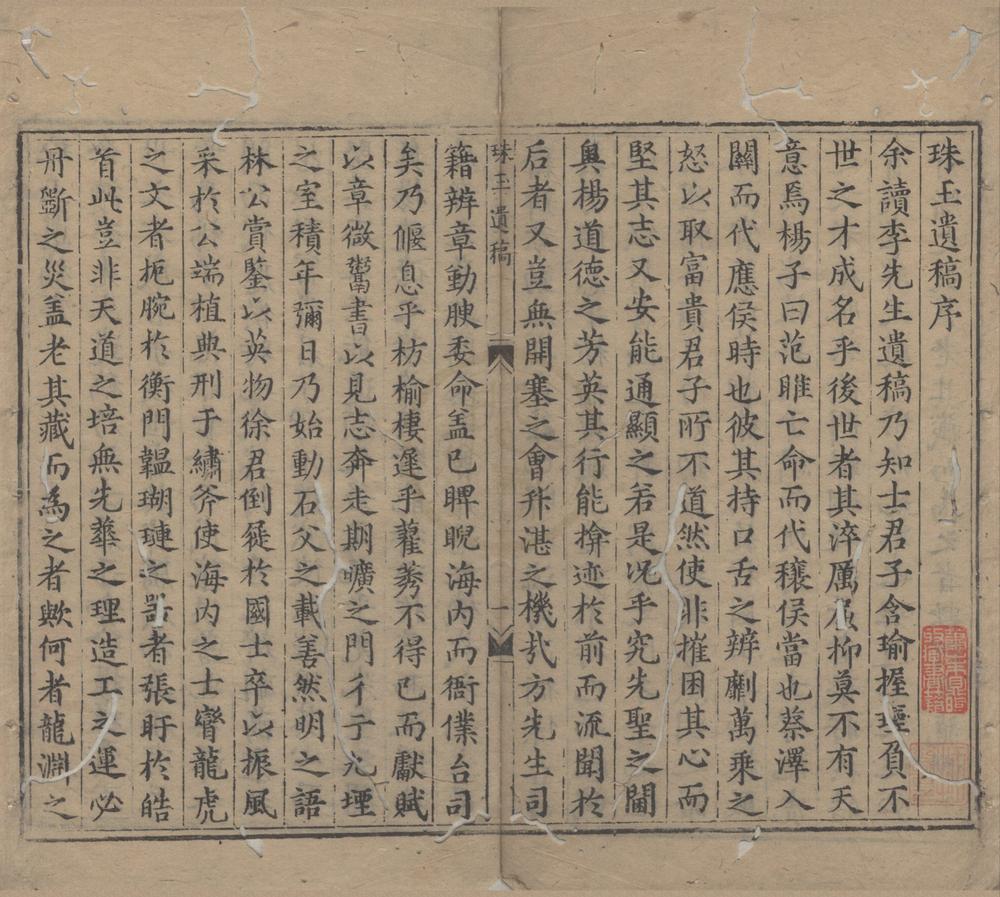 珠玉遺稿序
余讀李先生遺稿乃知士君子含瑜握瑾負不
世之才成名乎後世者其淬厲屈抑莫不有天
意焉楊子曰范睢亡命而代穰侯當也蔡澤入
關而代應侯時也彼其持口舌之辨劘萬乘之
怒以取富貴君子所不道然使非摧困其心而
堅其志又安能通顯之若是况乎究先聖之閫
奧楊道德之芳英其行能揜迹於前而流聞於
后者又豈無開塞之會升湛之機㦲方先生司
珠玉遺稿
一
籍辨章動腴委命盖已睥睨海内而衙僕台司
矣乃偃息乎枋榆棲遲乎藋莠不得已而獻賦
以章微鬻書以見志奔走期曠之門千于九堙
之室積年彌日乃始動石父之載善然明之語
林公賞鑒以英物徐君倒屣於國士卒以振風
采於公端植典刑于繡斧使海内之士奝龍虎
之文者扼腕於衡門韞瑚璉之器者張盱於皓
首此豈非天道之培無先蕐之理造工之運必
丹斵之災盖老其藏而為之者歟何者龍淵之